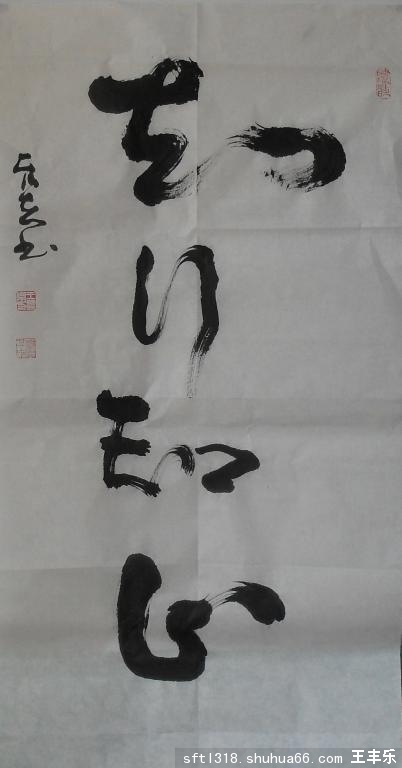 知行知止
书
sftl318.shuhua66.com 王丰乐